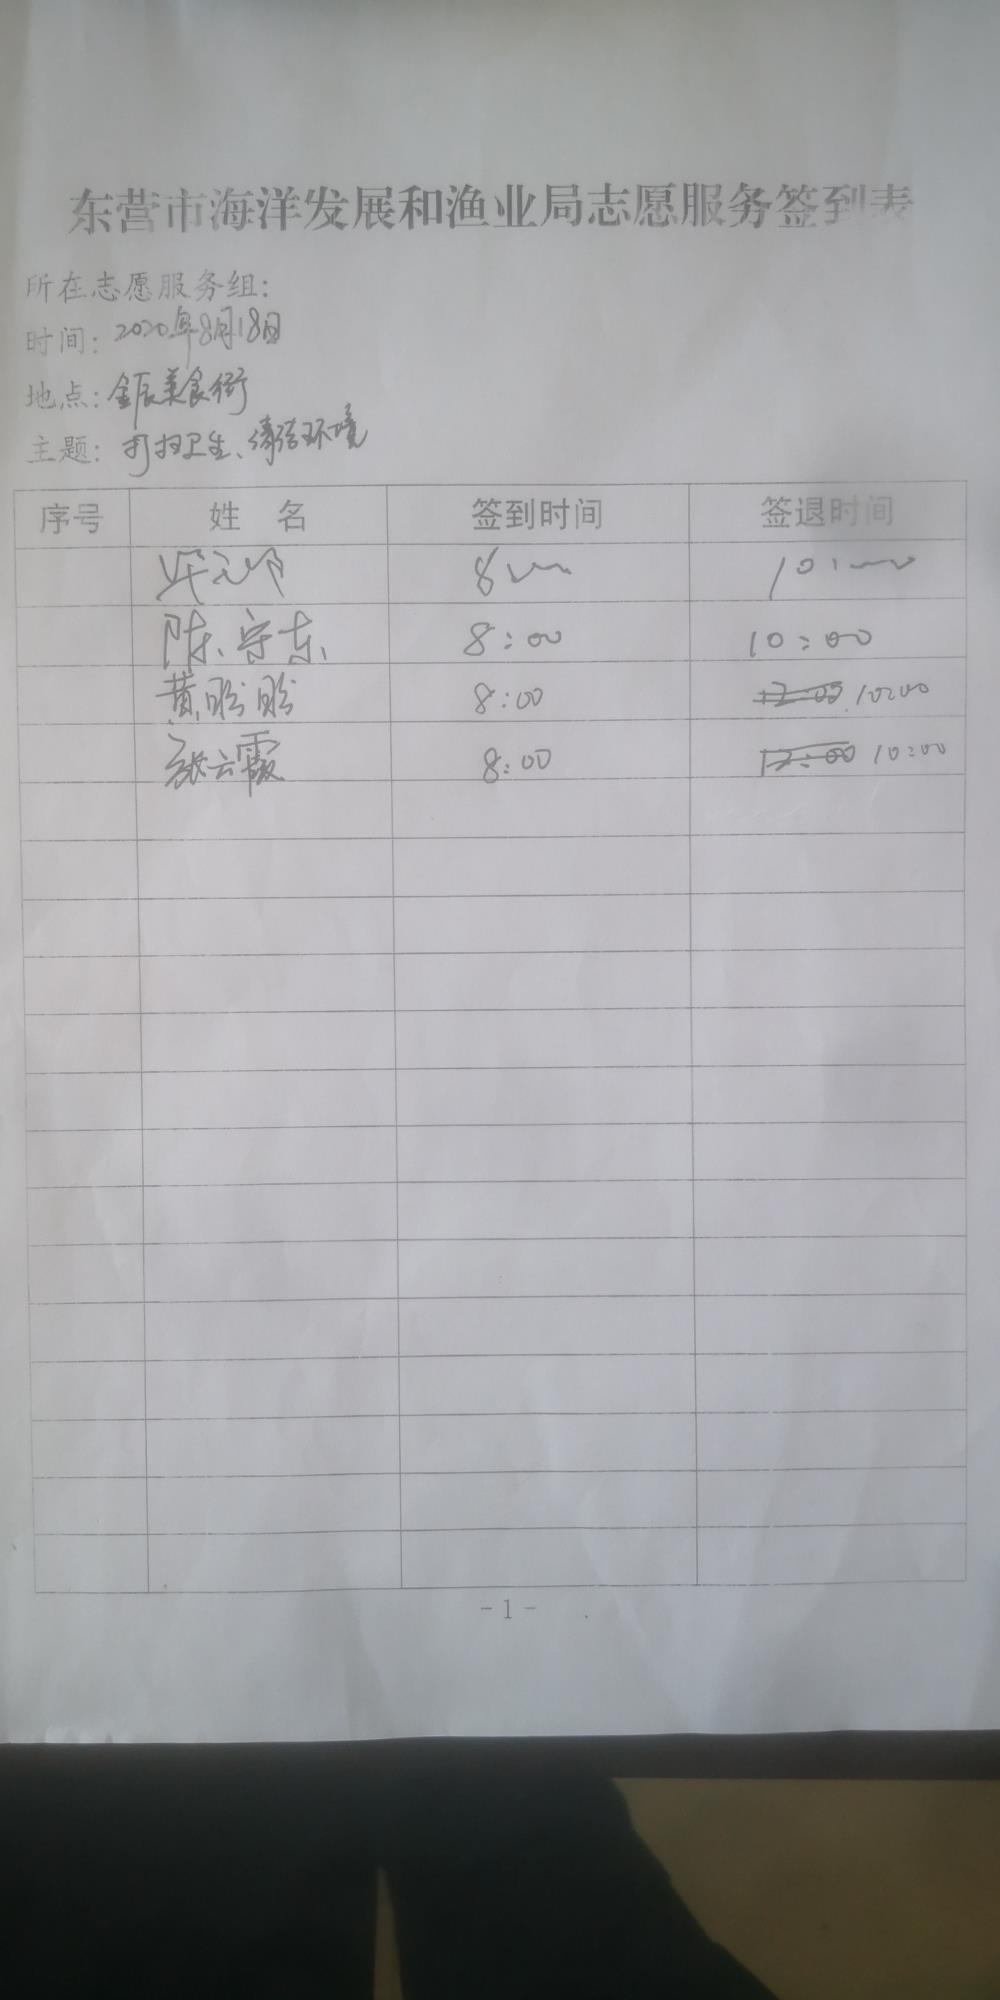 东营市海洋发展和渔业局志愿服务签到表
所在志愿服务组：
时间：2020年8月18日
地点：金辰美食街
主题：打扫卫生、清洁环境
序号 姓 名 签到时间 签退时间
陈守东 8:00 10:00
黄盼盼 8:00 12:00 10:00
张云霞 8:00 12:00 10:00
- 1 -